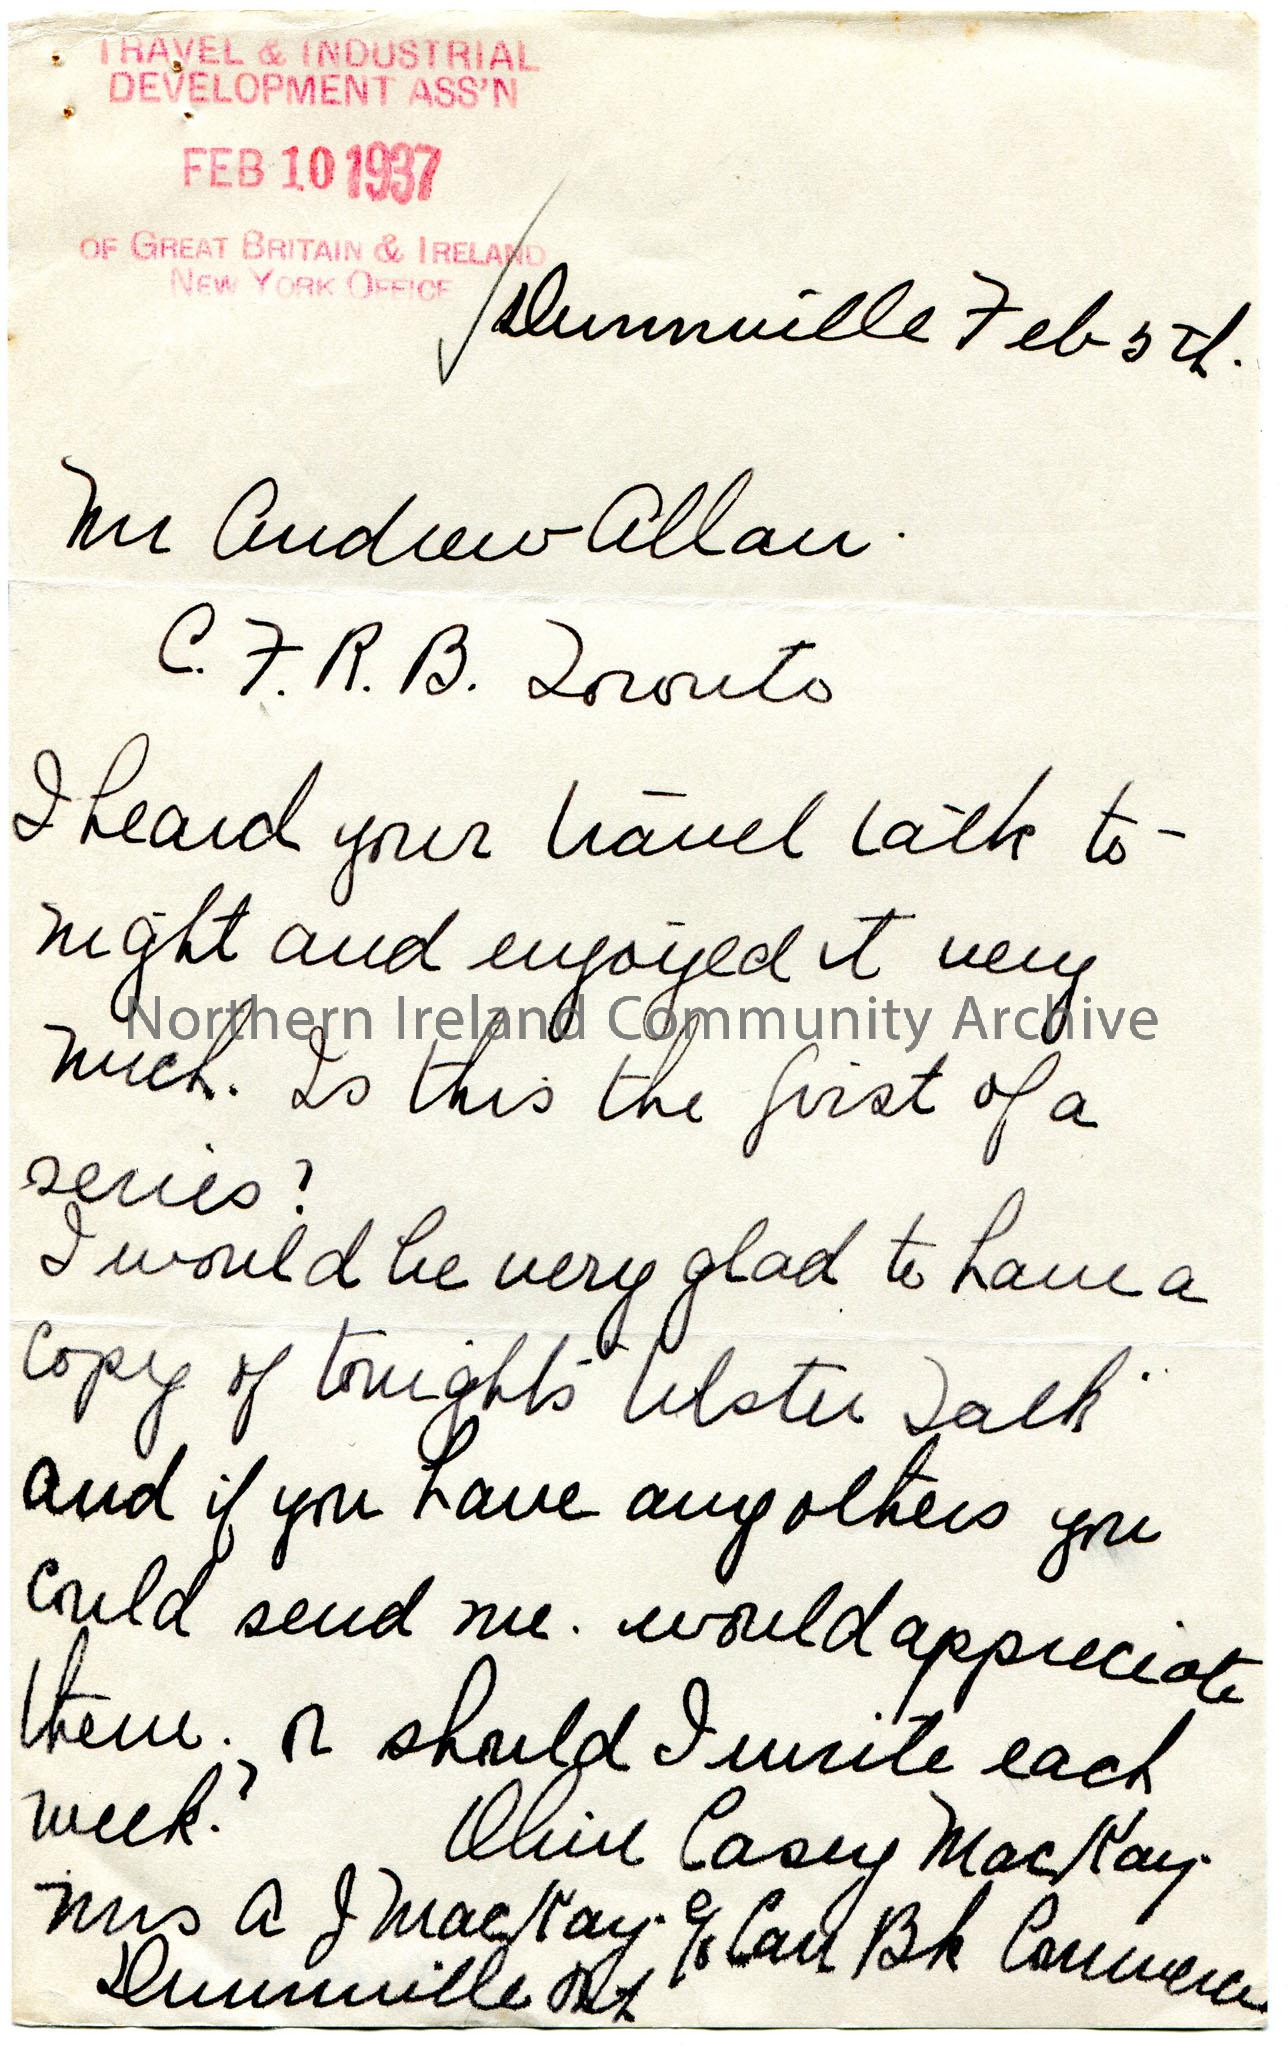 TRAVEL & INDUSTRIAL
DEVELOPMENT ASS'N
FEB 10 1937
OF GREAT BRITAIN & IRELAND
NEW YORK OFFICE
Dunnville Feb 5th.
Mr Andrew Allan.
C. F. R. B. Toronto
I heard your travel talk to-
night and enjoyed it very
Northern Ireland Community Archive
much. Is this the first of a
series?
I would be very glad to have a
copy of tonight's "Ulster Talk"
and if you have any others you
could send me. would appreciate
them. or should I write each
week?
Olive Casey MacKay.
Mrs A J MacKay. c/o Can Bk Commerce
Dunnville Ont